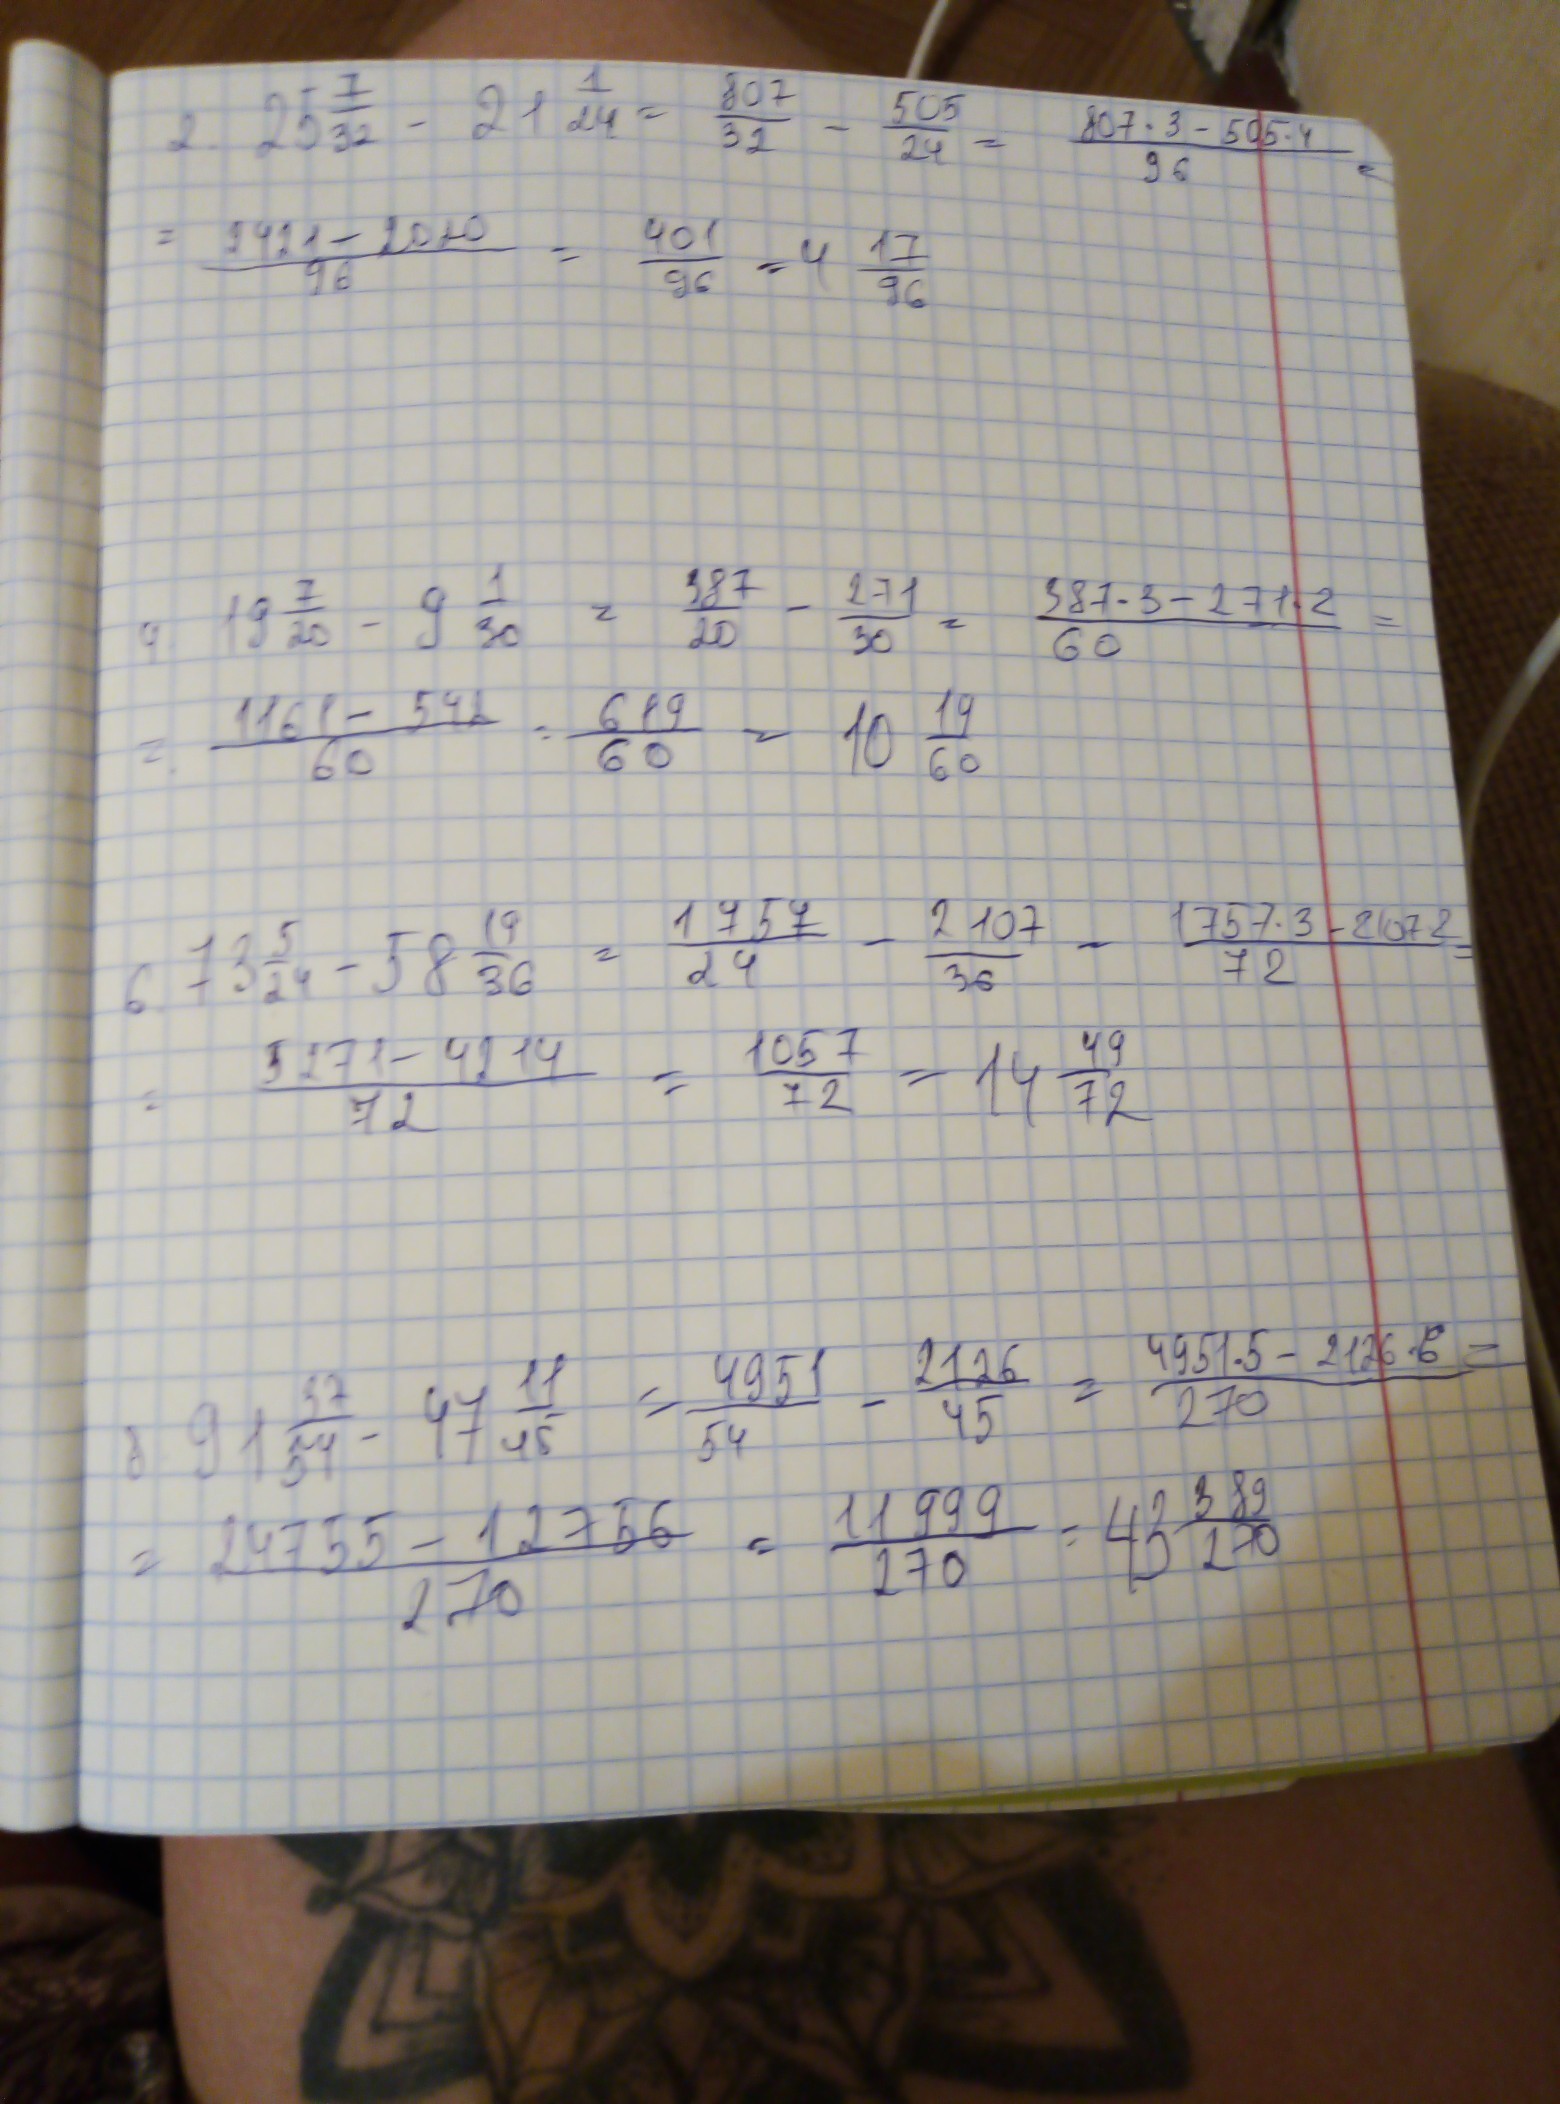 2. 25 7/32 - 21 1/24 = 807/32 - 505/24 = (807·3 - 505·4)/96 =
= (2421 - 2020)/96 = 401/96 = 4 17/96
4 19 7/20 - 9 1/30 = 387/20 - 271/30 = (387·3 - 271·2)/60 =
= (1161 - 542)/60 = 619/60 = 10 19/60
6. 73 5/24 - 58 19/36 = 1757/24 - 2107/36 - (1757·3 - 2107 2)/72 =
= (5271 - 4214)/72 = 1057/72 = 14 49/72
8 91 37/54 - 47 11/45 = 4951/54 - 2126/45 = (4951·5 - 2126·6)/270 =
= (24755 - 12756)/270 = 11999/270 = 43 389/270